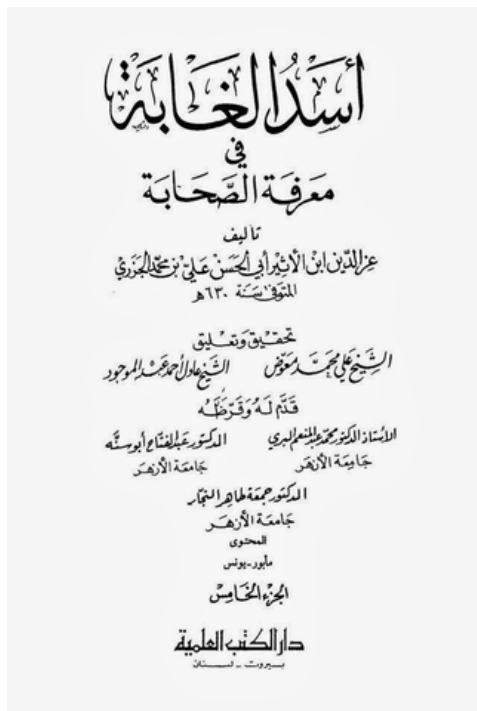 أسد الغابة
في
معرفة الصحابة
تأليف
عز الدين ابن الأثير أبي الحسن علي بن محمد الجزري
المتوفى سنة ٦٣٠ هـ
تحقيق وتعليق
الشيخ علي محمد معوض الشيخ عادل أحمد عبد الموجود
قدم له وقرظه
الأستاذ الدكتور محمد عبد المنعم البري الدكتور عبد الفتاح أبو سنه
جامعة الأزهر جامعة الأزهر
الدكتور جمعة طاهر النجار
جامعة الأزهر
المحتوى
مأبور - يونس
الجزء الخامس
دار الكتب العلمية
بيروت - لبنان